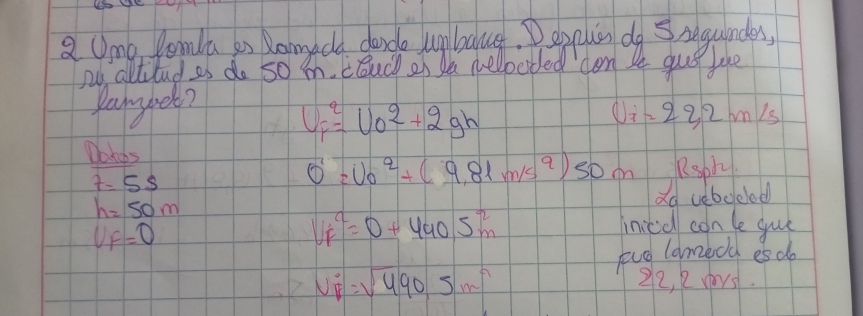 2 Una bomba es lanzada desde un barco. Después de 5 segundos,
su altitud es de 50 m. ¿Cuál es la velocidad con la que fue
lanzada?
Vf² = Vo² + 2gh
Vi = 22,2 m/s
Datos
t = 5s
h = 50m
Vf = 0
0 = Vo² + (9,81 m/s²) 50 m
Vi² = 0 + 490,5 m²
Vi = √490,5 m²
Rspt.
La velocidad
inicial con la que
fue lanzada es de
22,2 m/s.